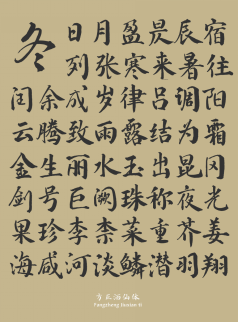 冬
日月盈昃辰宿
列张寒来暑往
闰余成岁律吕调阳
云腾致雨露结为霜
金生丽水玉出昆冈
剑号巨阙珠称夜光
果珍李柰菜重芥姜
海咸河淡鳞潜羽翔